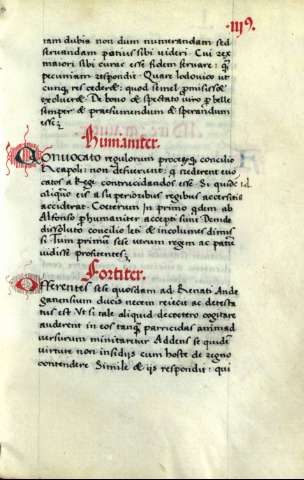 ·119·
tam dubia non dum numerandam sed
servandam potius sibi videri. Cui rex
maiori sibi curae esse fidem servare: q̄
pecuniam respondit. Quare lodovico ut
cunq, res cederet: quod semel promisisset
exolveret. De bono & spectato viro p belle
semper & praesumendum & sperandum
esse:
Humaniter.
Convocato regulorum procerūq; concilio
Neapoli: non defuerunt q crederent evo
catos a Rege contrucidandos esse. Si quidē id
aliquo eis a superioribus regibus accersitis
acciderat. Coeterum in primo qdem ab
Alfonso phumaniter accepti sunt. Deinde
dissoluto concilio leti & incolumes dimis
si. Tum primū sese verum regem ac patrē
vidisse profitentes:
Fortiter.
Offerentes sese quosdam ad Renati Ande
gavensium ducis necem reiecit ac detesta
tus est. Ut si tale aliquid decoetero cogitare
auderent in eos tanq̄ parricidas animad
versurum minitaretur. Addens se quidē
virtute non insidijs cum hoste de regno
contendere. Simile & ijs respondit: qui